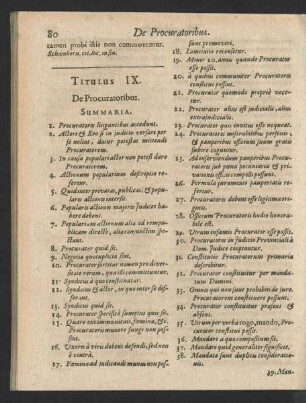 80 De Procuratoribus.
tamen probi istis non commoventur.
Schambora, cit. loc. in fin.
TITULUS IX.
De Procuratoribus.
SUMMARIA.
1. Procuratores litigantibus accedunt.
2. Actori & Reo si in judicio versari per se nolint, datur potestas mittendi Procuratorem.
3. In causa populari actor non potest dare Procuratorem.
4. Actionum popularium descriptio refertur.
5. Quadantur privatæ, publicæ, & popularis actionis interest.
6. Popularis actionum majores judices habere debent.
7. Popularium actionum aliæ ad vempublicam directò, aliæ connexitim spectant.
8. Procurator quid sit.
9. Negotia quotuplicia sint.
10. Procuratori sortitur nomen pro diversitate rerum, quæ iis committuntur.
11. Syndicus à quo constituatur.
12. Syndicus & actor, in quo inter se differant.
13. Syndicus quid sit.
14. Procurator specificè sumptus quis sit.
15. Quare excommunicati, fœmina, &c. Procuratoris munere fungi non possint.
16. Uxor à viris debent defendi, sed non è contrà.
17. Fœmina ad judicandi munus non possunt promoveri.
18. Limitatio recensetur.
19. Minor 20. annis quando Procurator esse possit.
20. à quibus communiter Procuratores constitui possint.
21. Procurator quomodo propriè vocetur.
22. Procurator alius est judicialis, alius extrajudicialis.
23. Procurator quis invitus esse nequeat.
24. Procuratores miserabilibus personis, & pauperibus officium suum gratis judicio coguntur.
25. Ad inserviendum pauperibus Procuratores sub pœna pecuniaria & privationis officii compelli possunt.
26. Formula juramenti paupertatis refertur.
27. Procuratores debent esse legitimæ cognitæ.
28. Officium Procuratoris hodie honorabile est.
29. Utrum infamis Procurator esse possit.
30. Procuratores in judicio Provinciali à Dom. Judice coguntur.
31. Constitutio Procuratorum primaria describitur.
32. Procurator constituitur per mandatum Domini.
33. Omnis qui non sunt prohibiti de jure Procuratorem constituere possunt.
34. Procurator constituitur præsens & absens.
35. Utrum per verba rogo, mando, Procurator constitui possit.
36. Mandare à quo compositum sit.
37. Mandare quid generaliter significet.
38. Mandata sunt duplicis considerationis.
39. Man-